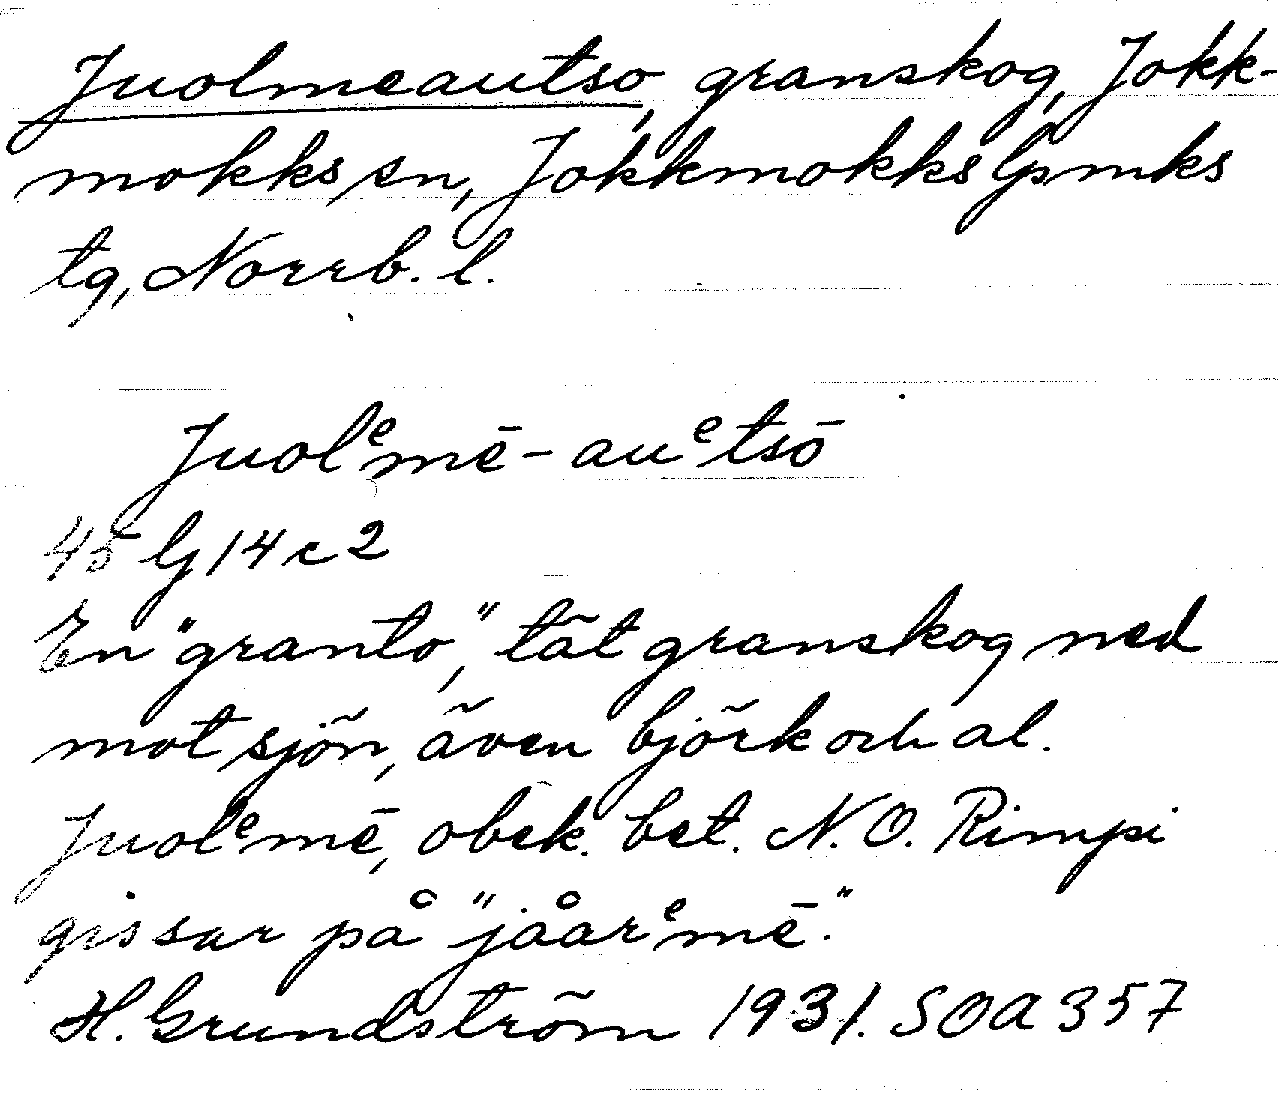 Juolmeautso, granskog, Jokk-
mokks sn, Jokkmokks lpmks
tg, Norrb. l.
Juolᵉmē-auᵉtsō
45 G 14 c 2
En "granto", tät granskog ned
mot sjön, även björk och al.
Juolᵉmē, obek. bet. N.O. Rimpi
gissar på "jåårᵉmē".
H. Grundström 1931. SOA 357